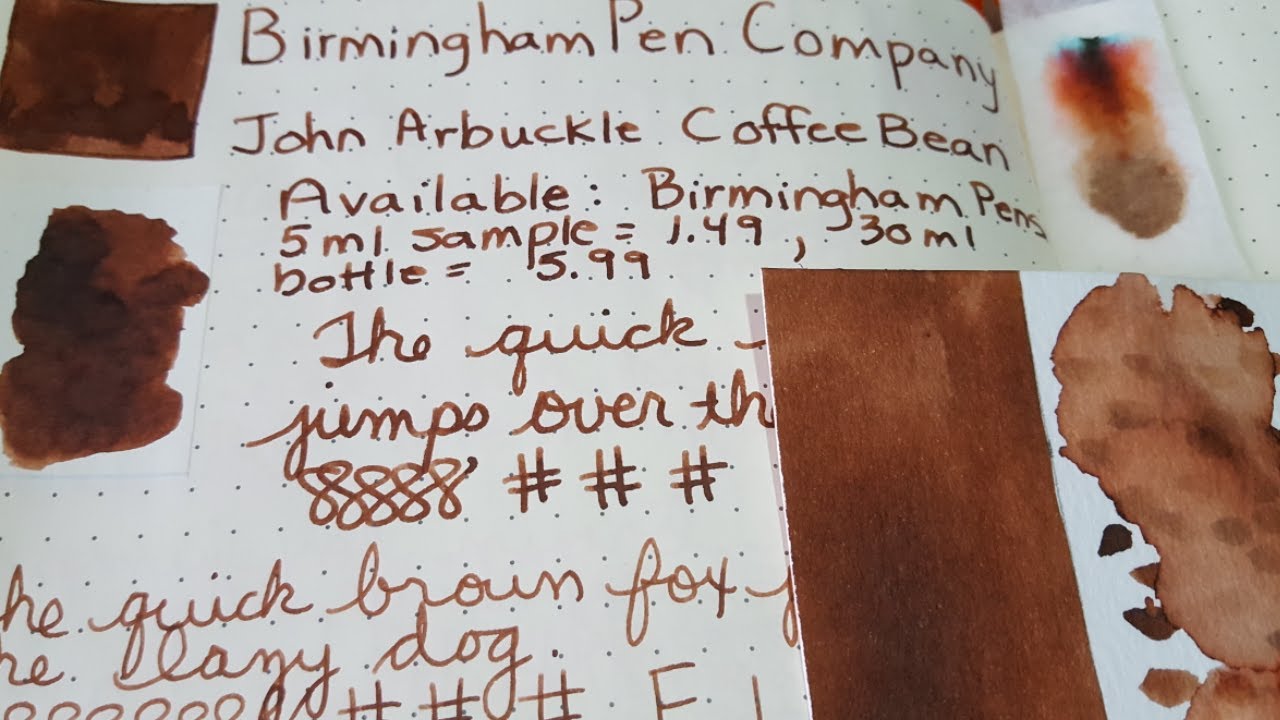 Birmingham Pen Company
John Arbuckle Coffee Bean
Available: Birmingham Pens
5ml sample = 1.49, 30ml
bottle = 5.99
The quick
jumps over th
88888 # # #
he quick brown fox j
he lazy dog.
# # # E